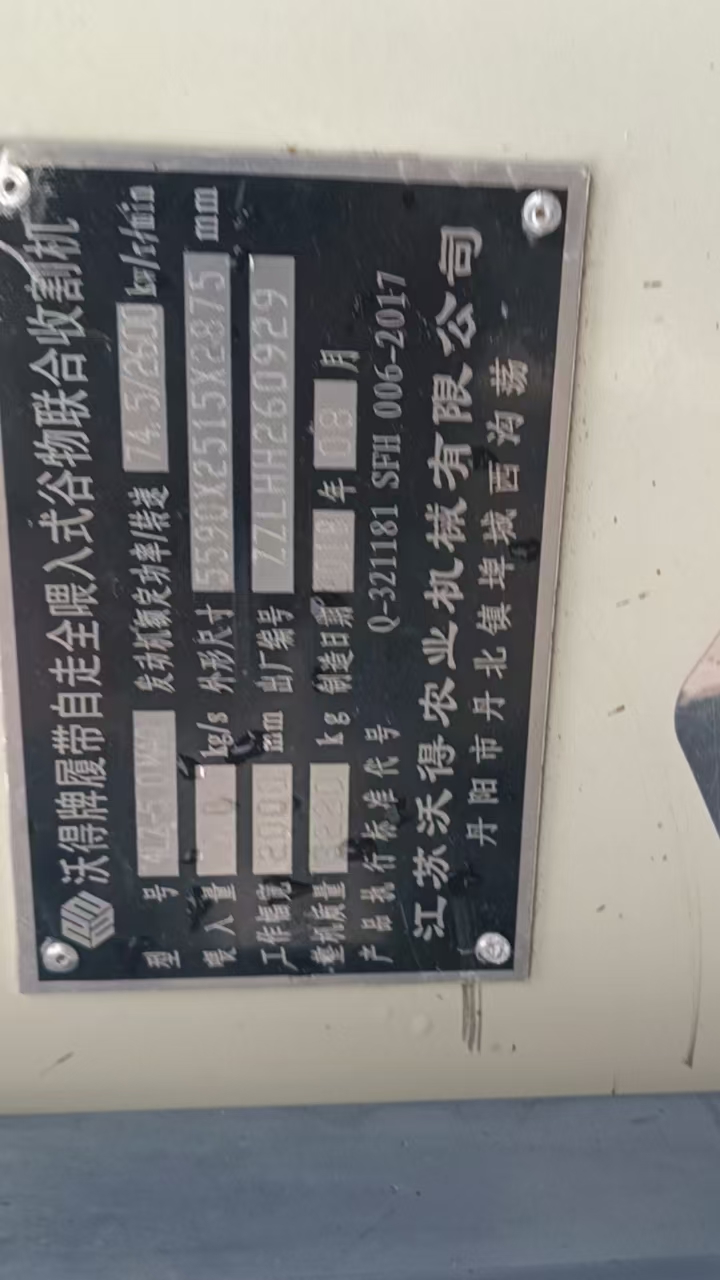 沃得牌履带自走全喂入式谷物联合收割机
型号 发动机额定功率/转速 74.5/2600 kw/r/min
喂入量 kg/s 外形尺寸 5590X2515X2875 mm
工作幅宽 2000 mm 出厂编号 ZZLHH260929
整机质量 kg 制造日期 年 08 月
产品执行标准代号 Q-321181 SFH 006-2017
江苏沃得农业机械有限公司
丹阳市丹北镇埤城西沟荡